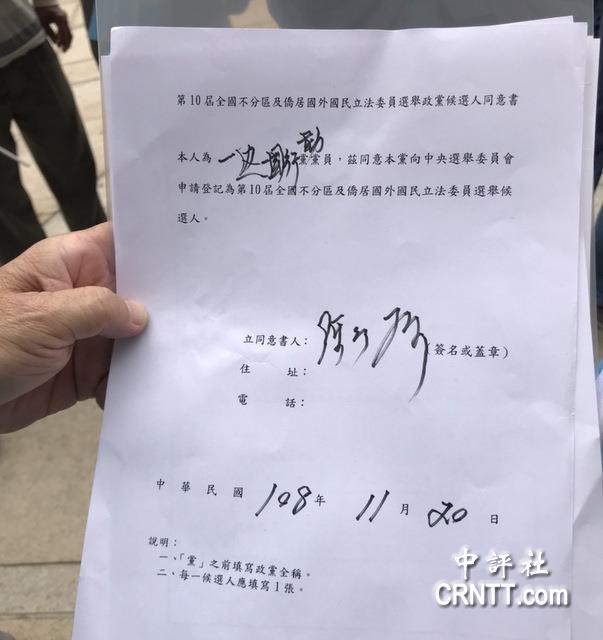 第10屆全國不分區及僑居國外國民立法委員選舉政黨候選人同意書
本人為 一边一國行動黨黨員，茲同意本黨向中央選舉委員會
申請登記為第10屆全國不分區及僑居國外國民立法委員選舉候
選人。
立同意書人： (簽名或蓋章)
住 址：
電 話：
中華民國 108 年 11 月 20 日
說明：
一、「黨」之前填寫政黨全稱。
二、每一候選人應填寫1張。
中評社
CRNTT.com